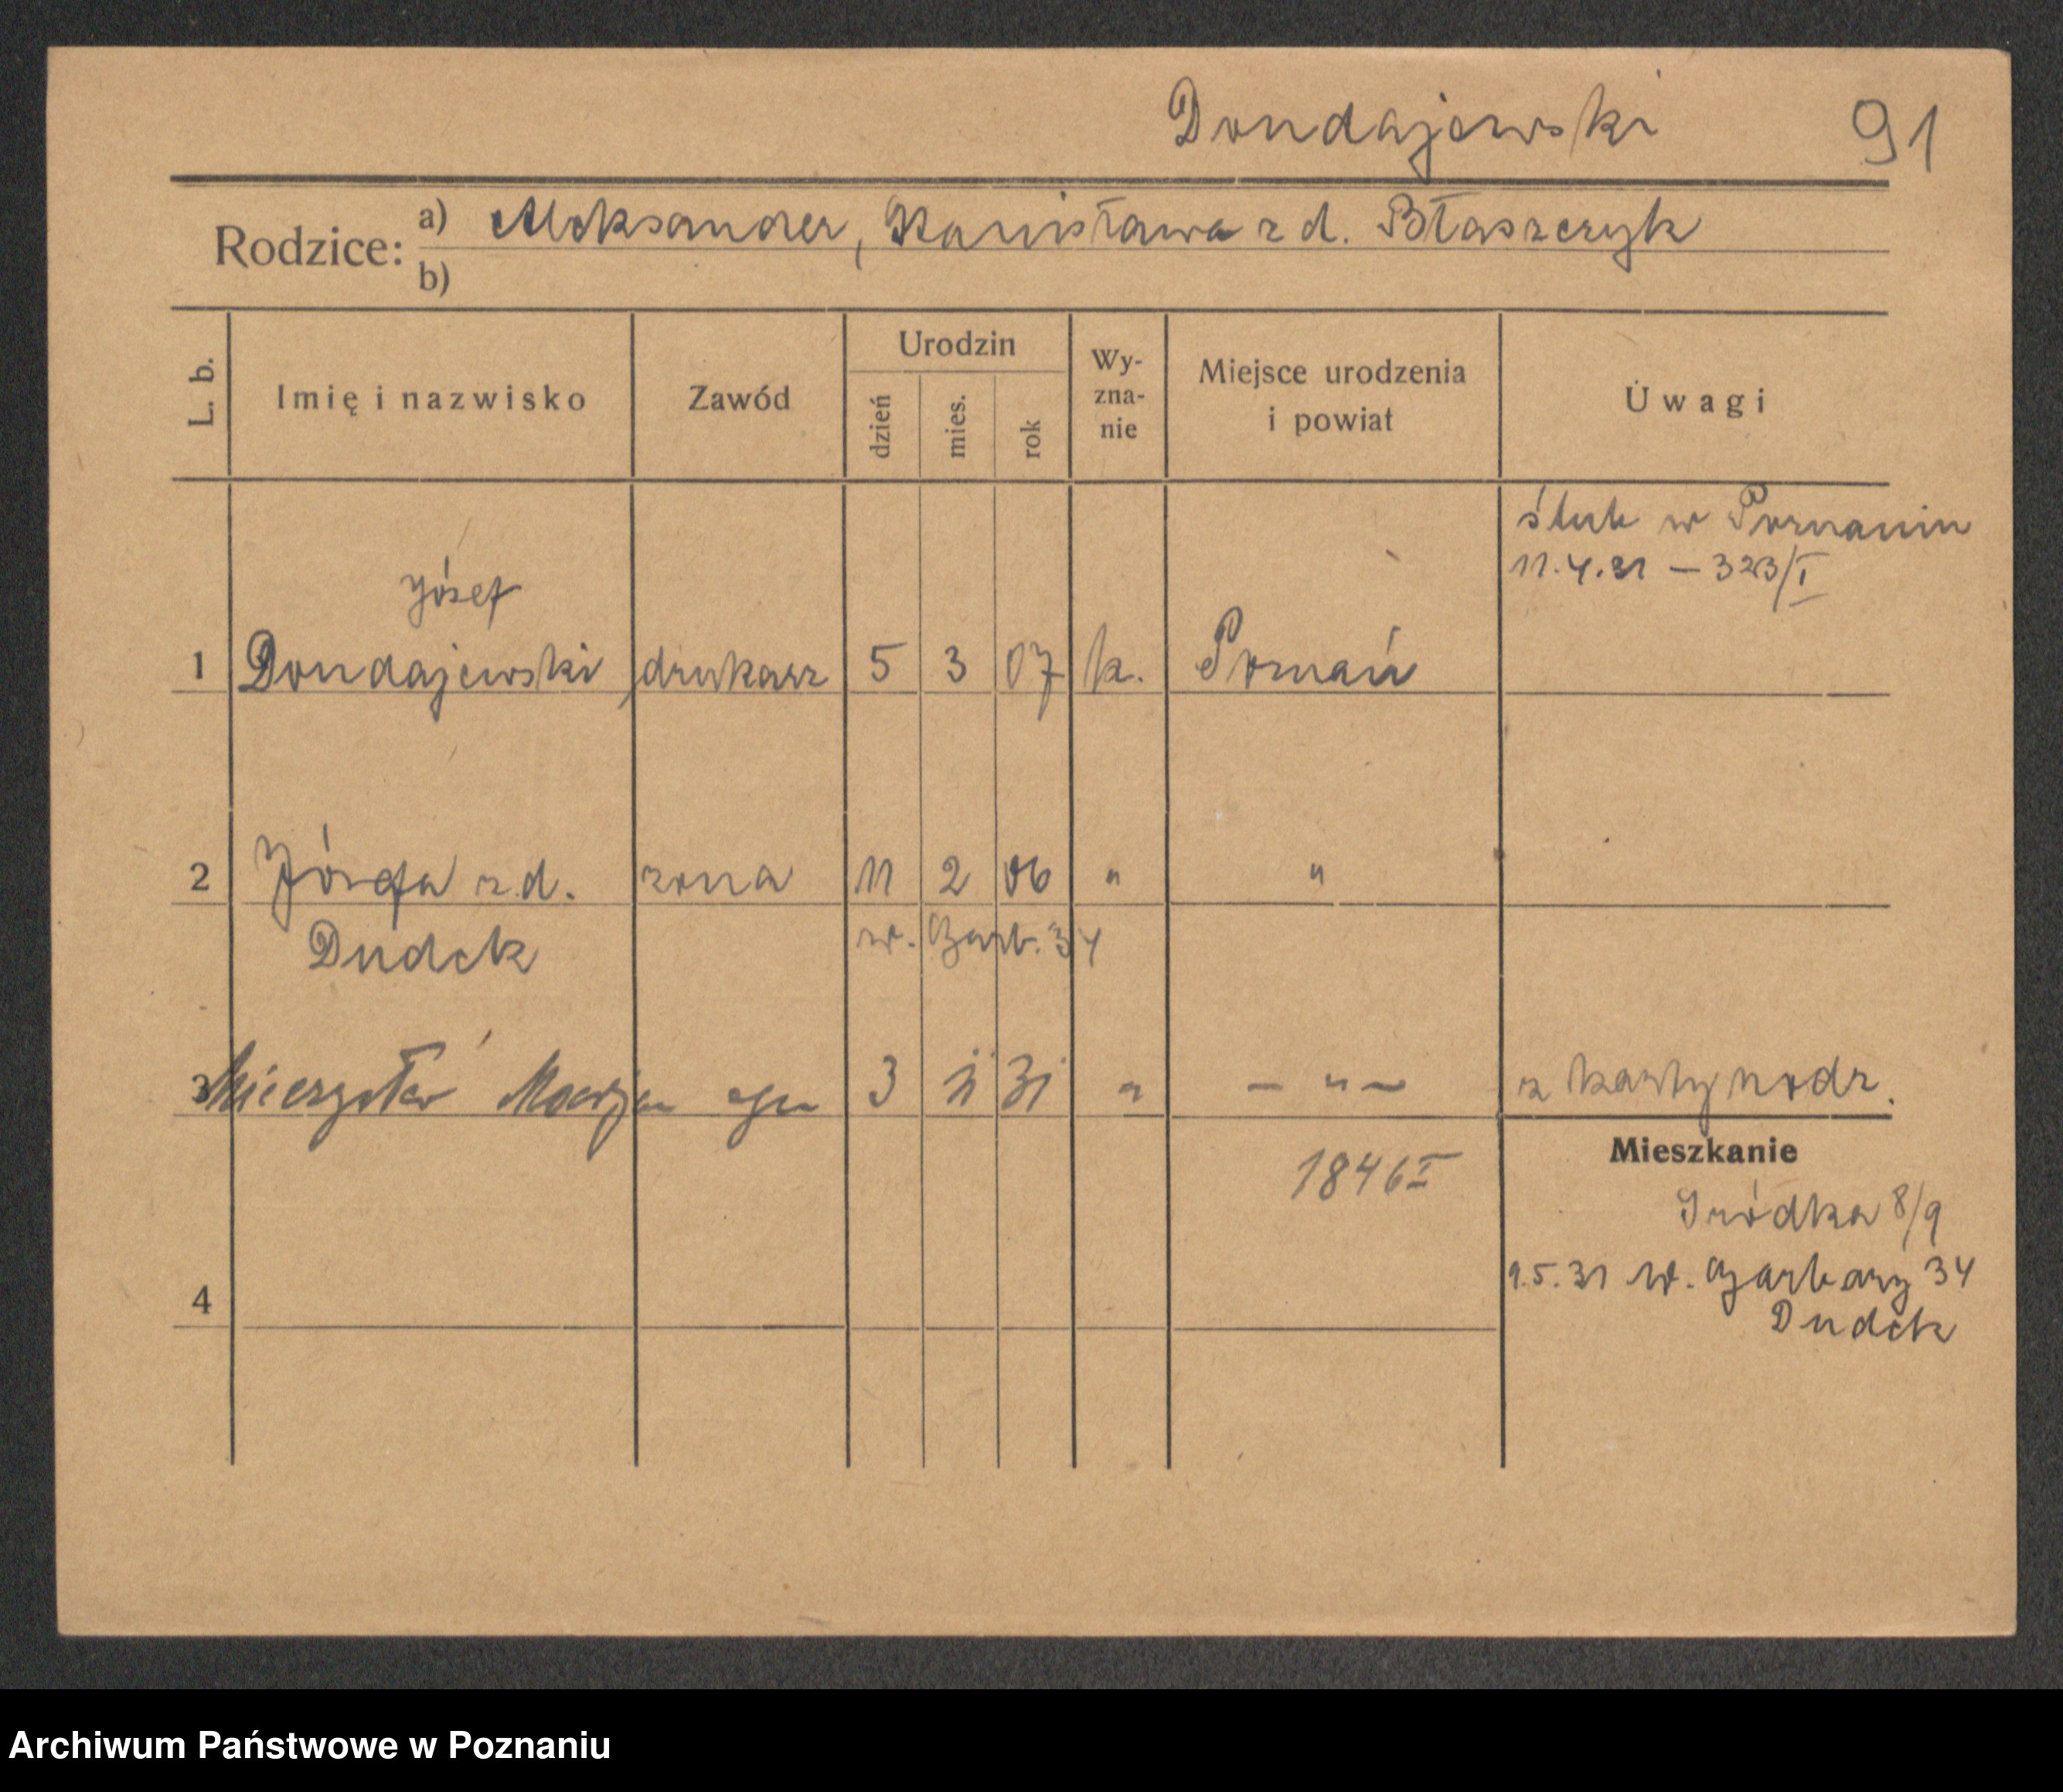 Dondajewski 91
Rodzice: a) Aleksander, Stanisława z d. Błaszczyk
b)
L. b. Imię i nazwisko Zawód Urodzin dzień mies. rok Wy-zna-nie Miejsce urodzenia i powiat Uwagi
ślub w Poznaniu
11.4.31 – 323/I
Józef
1 Dondajewski drukarz 5 3 07 k. Poznań
2 Józefa z d. żona 11 2 06 " "
Dudek w. Garb. 34
3 Mieczysław Marjan syn 3 11 31 " – " – z karty rodz.
Mieszkanie
1846 I
Śródka 8/9
9.5.31 W. Garbary 34
4
Dudek
Archiwum Państwowe w Poznaniu